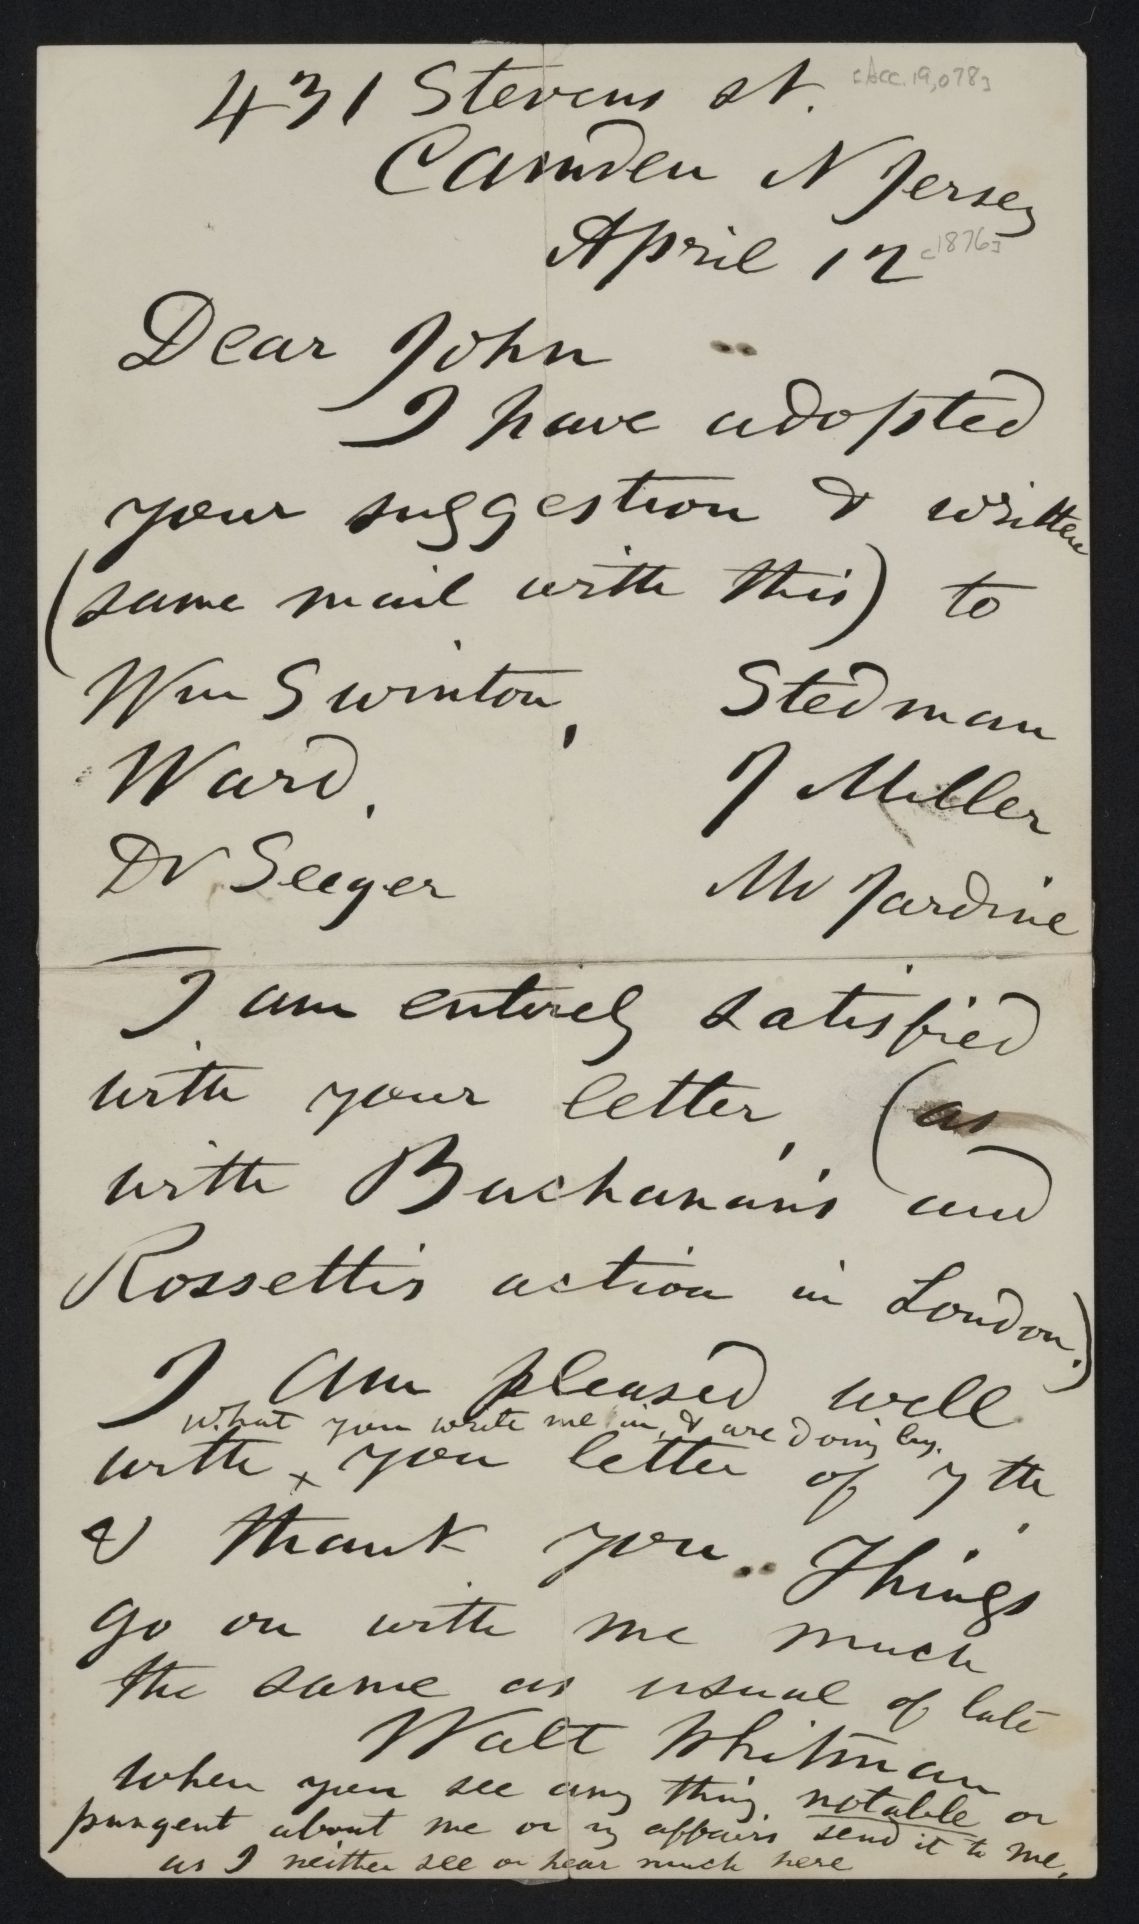 [Acc. 19,078]
431 Stevens st.
Camden N Jersey
April 12 [1876]
Dear John
I have adopted
your suggestion & written
(same mail with this) to
Wm Swinton, Stedman
Ward, J Miller
Dr Seeger Mr Jardine
I am entirely satisfied
with your letter, (as
with Buchanan's and
Rossetti's action in London.)
I am pleased well
what you write me in, & are doing by.
with x you letter of 7th
& thank you.. Things
go on with me much
the same as usual of late
Walt Whitman
when you see any thing notable or
pungent about me or my affairs send it to me,
as I neither see or hear much here